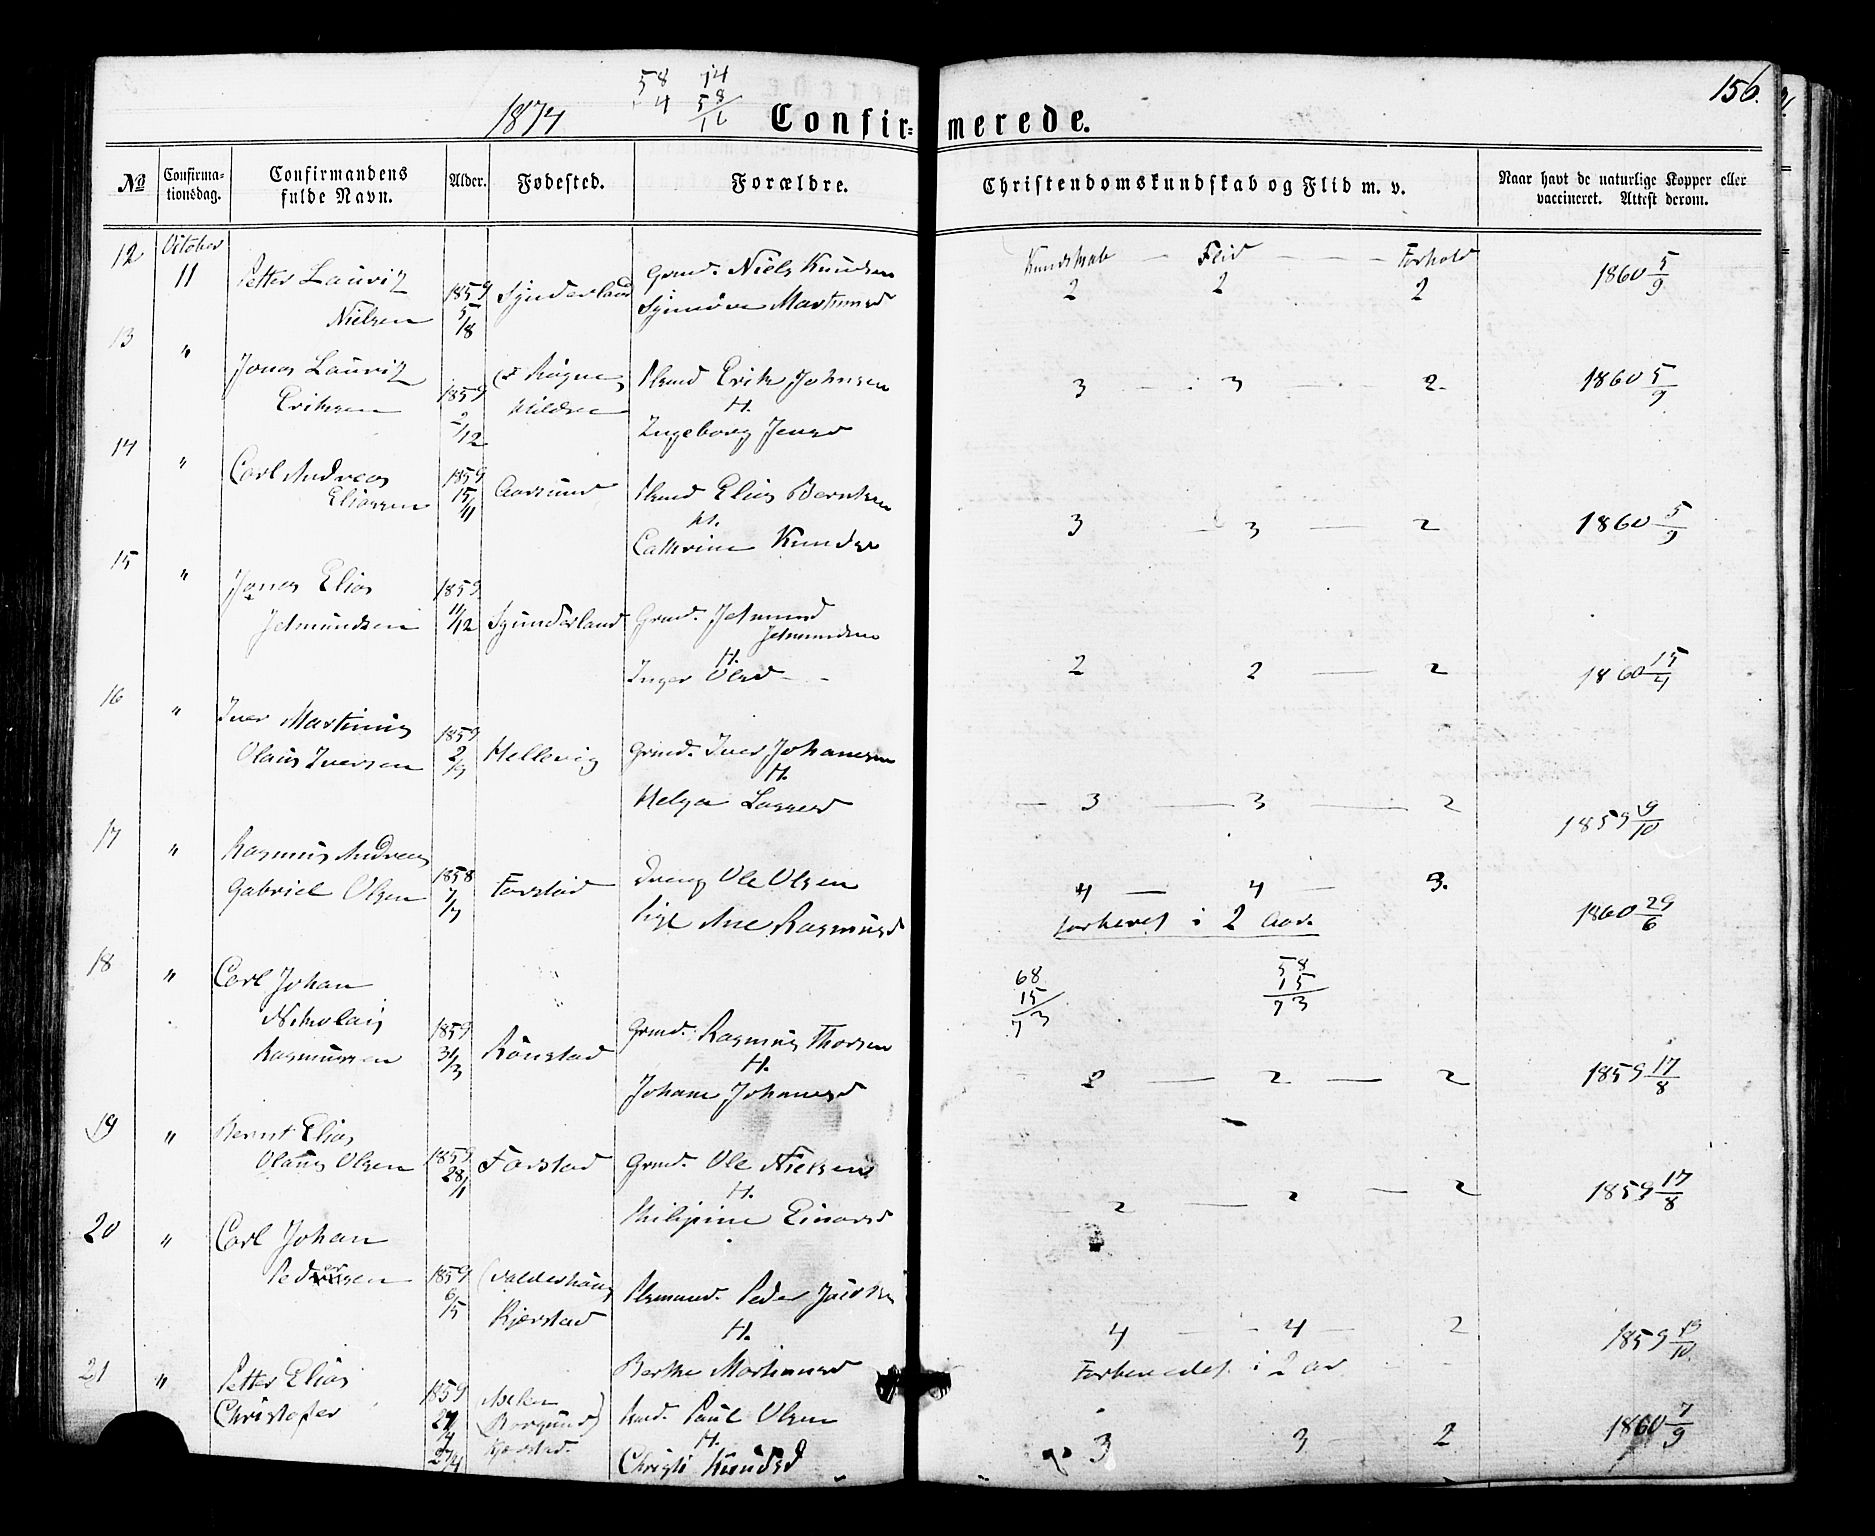 58 14
4 58
16
156.
1874
Confir= merede.
No Confirma= Confirmandens Alder. Fødested. Forældre. Christendomskundskab og Flid m. v. Naar havt de naturlige Kopper eller
tionsdag. fulde Navn. vaccineret. Attest derom.
12 October
11 Petter Lauritz 1859 Synderland Grmd. Niels Knudsen Kundskab — Flid — Forhold 1860 5/9
Nielsen 5/8 Martinusd 2 2 2
13 " Jonas Lauritz 1859 Erik Johnsen 3 — 3 — 2. 1860 5/9
Eriksen 2/12 H.
Ingeborg Jensd
14 " Carl Andreas 1859 Aarsund Elias Berntsen
Eliassen 15/11 H. 3 — 3 — 2 1860 5/9
Cathrine Knudsd
15 " Jonas Elias 1859
Jetmundsen 11/12 Synderland Grmd. Jetmund
Jetmundsen
H.
Inger Olsd 2 2 — 2 1860 15/4
16 " Iver Martinus 1859
Olaus Iversen 2/9 Hellevig Grmd. Iver Johansen
H.
Helga Lassesd — 3 — 3 — 2 1859 9/10
17 " Rasmus Andreas 1858
Gabriel Olsen 7/7 Farstad Dreng Ole Olsen 4 — 4 — 3. 1860 29/6
Pige Ane Rasmusd i 2 Aar.
18 " Carl Johan 68 58
15 15
73 73
Nikolai 1859 Grmd. Rasmus Thorsen
Rasmussen 31/3 Rønstad H. 2 — 2 — 2 1859 17/8
Johane Johanesd
19 " Bernt Elias 1859
Olaus Olsen 28/1 Farstad Grmd. Ole Nielsen
H. 2 — 2 — 2 1859 17/8
Philipine Einarsd
20 " Carl Johan
Pedersen 1859 (Valderhaug
6/5 Kjerstad Peder
H. 4 — 4 — 2 1859
Berthe Martinusd i 2 Aar
21 " Petter Elias 1859
Christofer 27/4 (Borgund) Paul Olsen 3 3 2 1860 7/9
27/4 Kjerstad. H.
Christi Knudsd